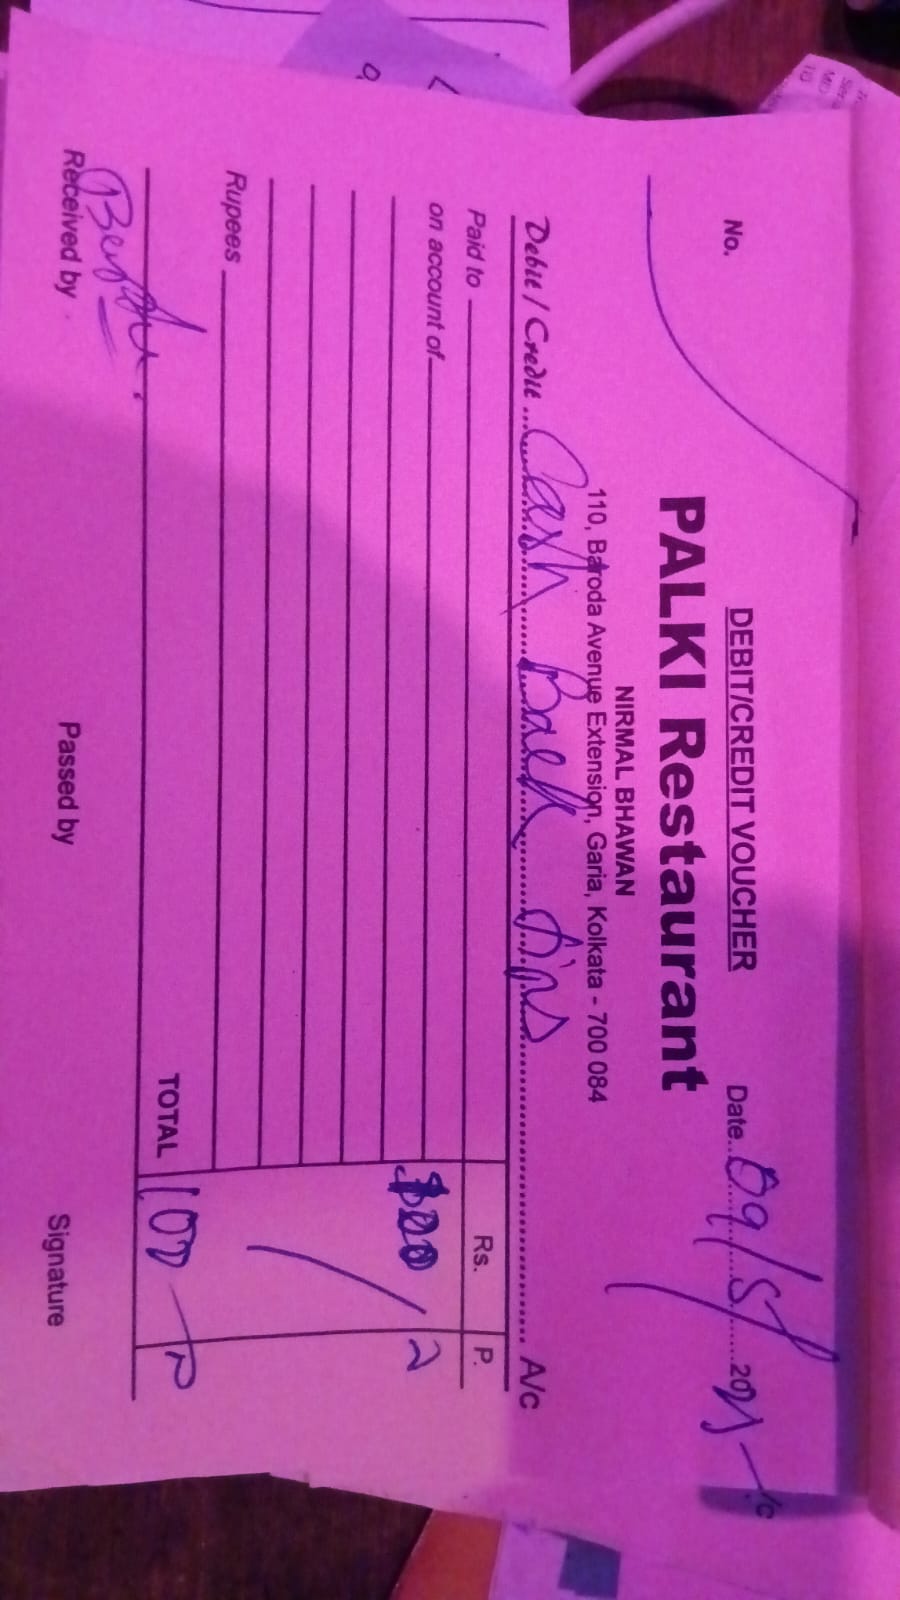 DEBIT/CREDIT VOUCHER
No.
Date
PALKI Restaurant
NIRMAL BHAWAN
110, Baroda Avenue Extension, Garia, Kolkata - 700 084
Debit / Credit Cash Back A/c
Paid to Rs. P.
on account of
Rupees
TOTAL 100
Received by Passed by Signature